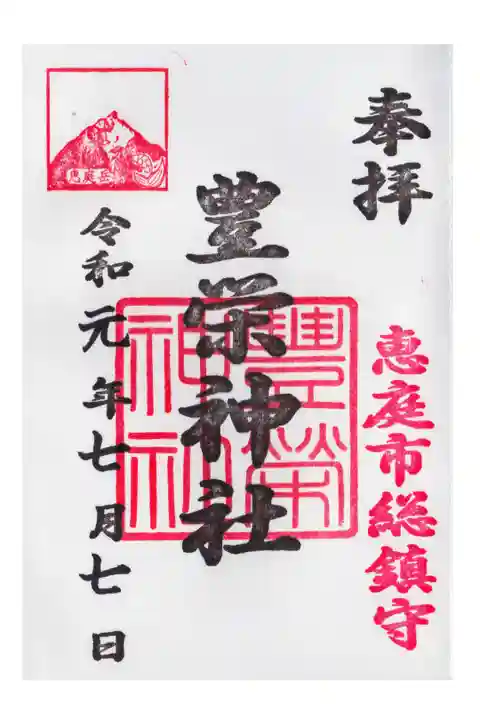 奉拝
恵庭市総鎮守
豊栄神社
豊榮神社
恵庭岳
令和元年七月七日